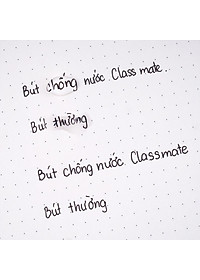 Bút chống nước Class mate.
Bút thường
Bút chống nước Classmate
Bút thường